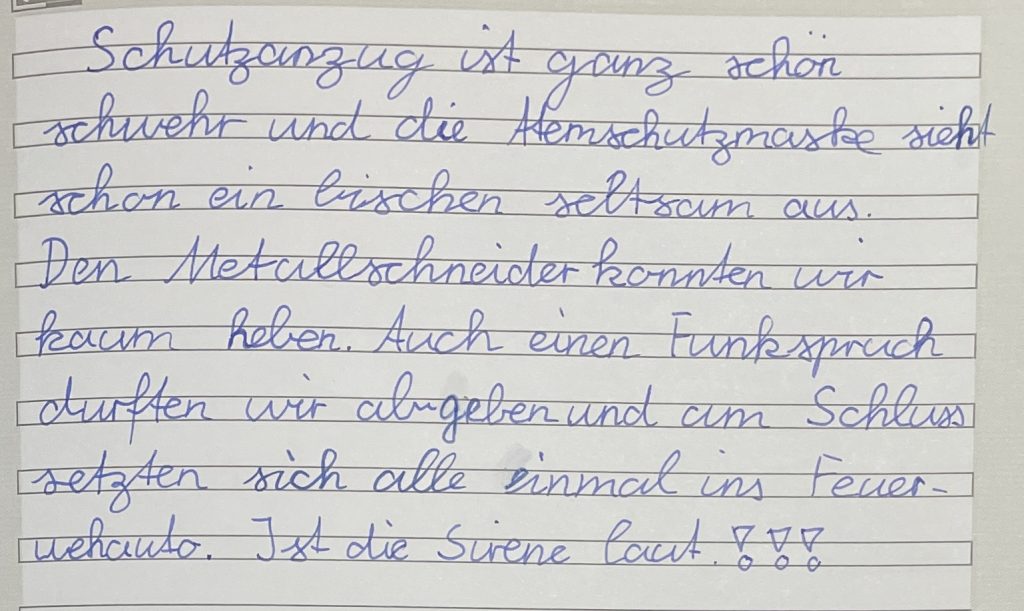 Schutzanzug ist ganz schön
schwehr und die Atemschutzmaske sieht
schon ein bischen seltsam aus.
Den Metallschneider konnten wir
kaum heben. Auch einen Funkspruch
durften wir abgeben und am Schluss
setzten sich alle einmal ins Feuer-
wehauto. Ist die Sirene laut.!!!